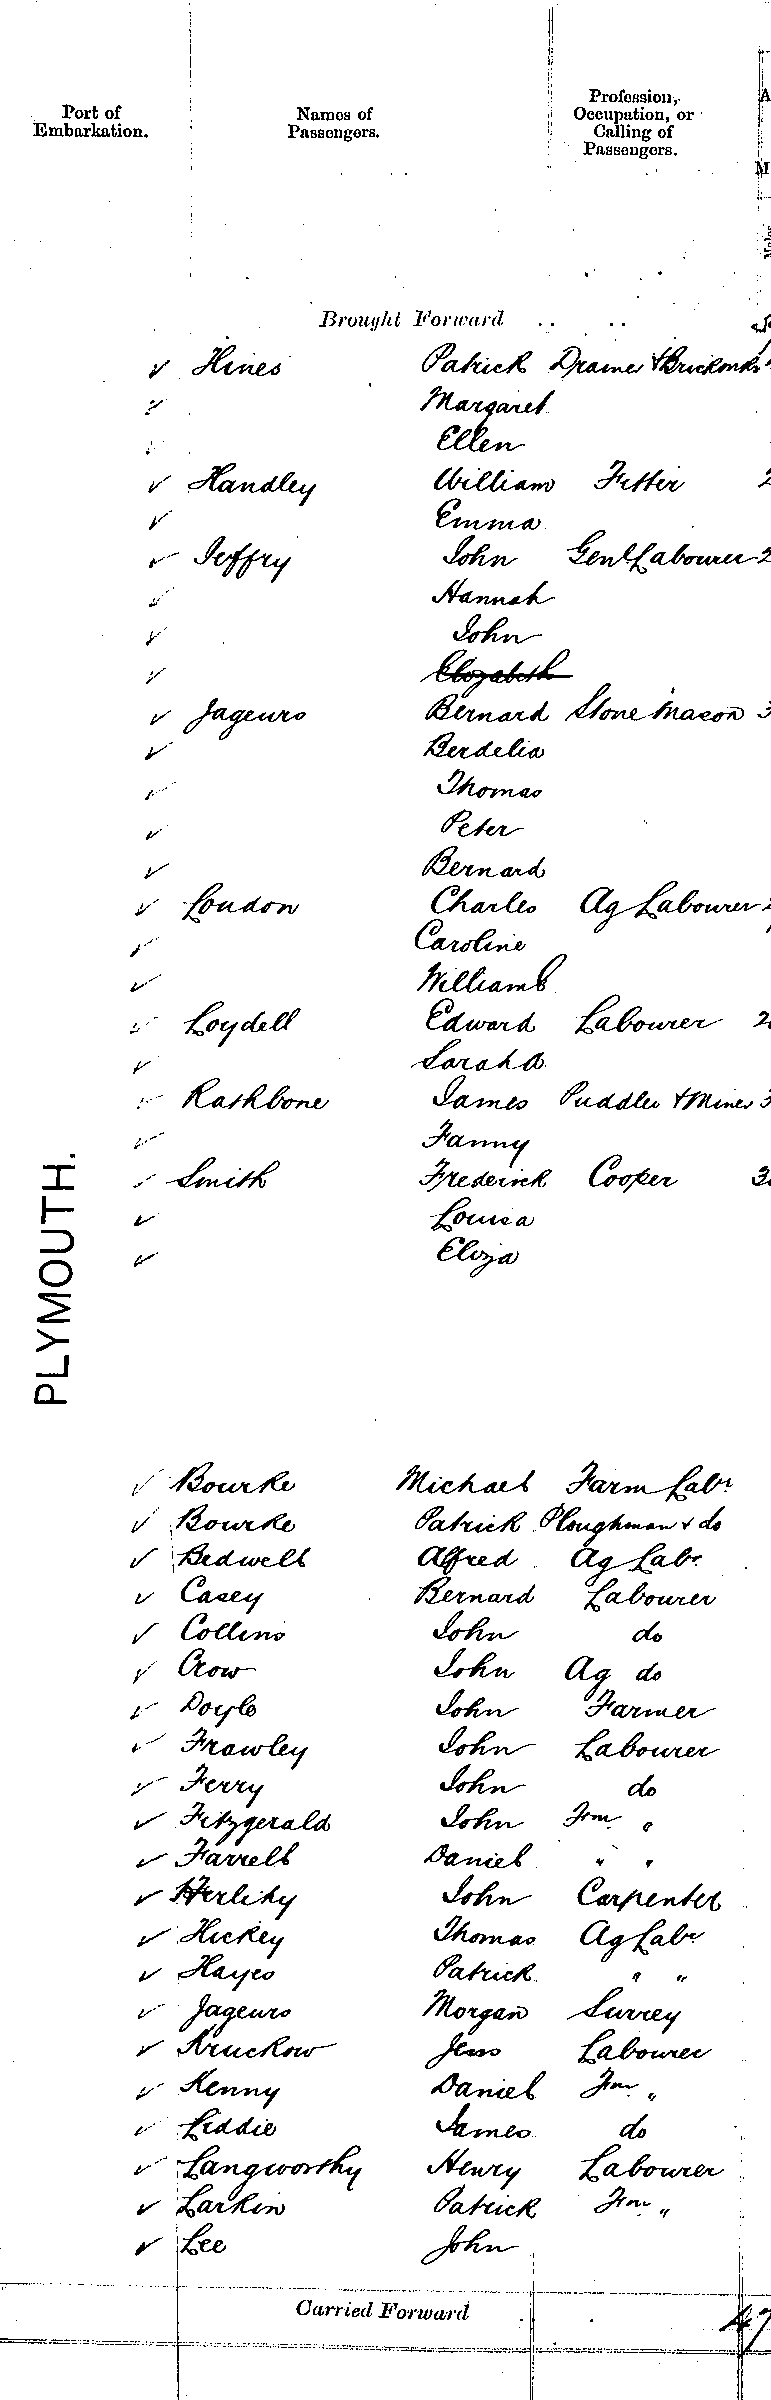 Port of Embarkation.
Names of Passengers.
Profession, Occupation, or Calling of Passengers.
Brought Forward .. ..
Hines Patrick Drainer & Brickmkr
Margaret
Ellen
Handley William Fitter 2
Emma
Jeffry John Genl Labourer 2
Hannah
John
Elizabeth
Jageurs Bernard Stone Mason 3
Berdelia
Thomas
Peter
Bernard
Loudon Charles Ag Labourer 2
Caroline
William
Loydell Edward Labourer 2
Sarah A
Rathbone James Puddler & Miner 3
Fanny
Smith Frederick Cooper 3
Louisa
Eliza
PLYMOUTH.
Bourke Michael Farm Labr
Bourke Patrick Ploughman & do
Bedwell Alfred Ag Labr
Casey Bernard Labourer
Collins John do
Crow John Ag do
Doyle John Farmer
Frawley John Labourer
Ferry John do
Fitzgerald John Frm "
Farrell Daniel " "
Herlihy John Carpenter
Hickey Thomas Ag Labr
Hayes Patrick " "
Jageurs Morgan Surrey
Kruckow Jens Labourer
Kenny Daniel Frm "
Liddie James do
Langworthy Henry Labourer
Larkin Patrick Frm "
Lee John
Carried Forward 47